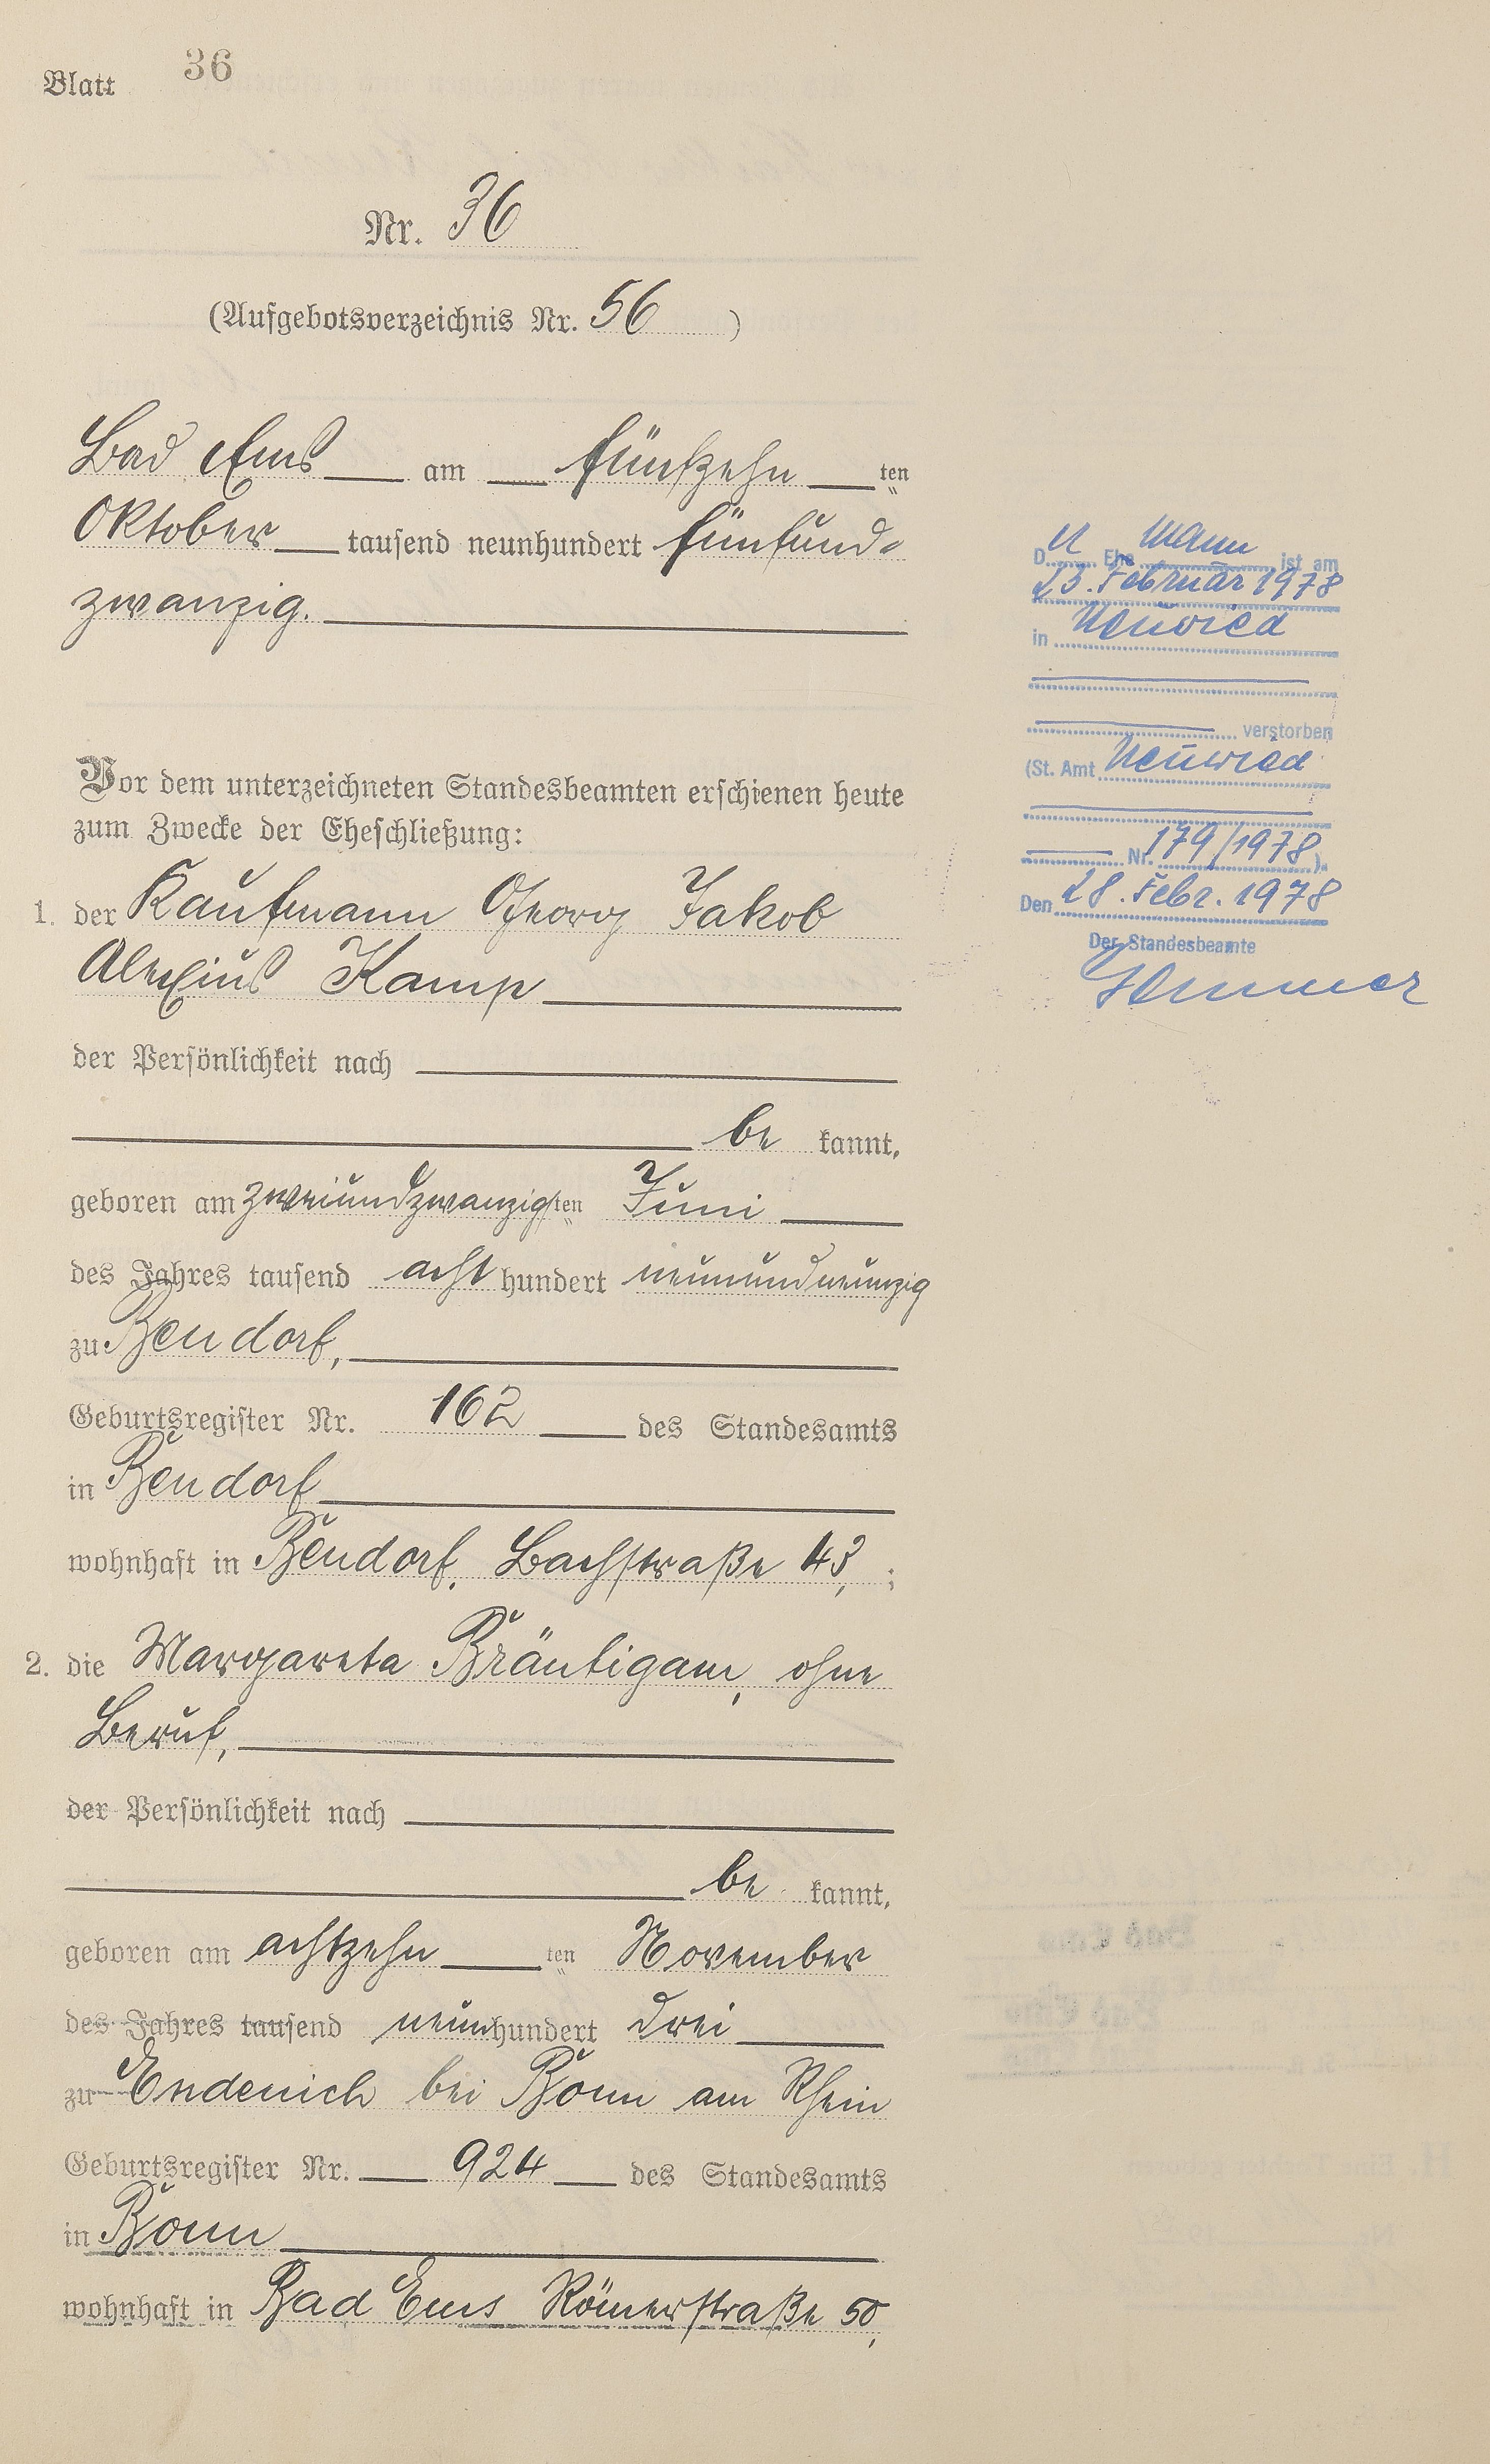 Blatt 36
Nr. 36
(Aufgebotsverzeichnis Nr. 56 )
Bad Ems am fünfzehn ten
Oktober tausend neunhundert fünfund-
zwanzig.
Vor dem unterzeichneten Standesbeamten erschienen heute
zum Zwecke der Eheschließung:
1. der Kaufmann Georg Jakob
Alexius Kamp
der Persönlichkeit nach
be kannt,
geboren am zweiundzwanzigsten Juni
des Jahres tausend acht hundert neunundneunzig
zu Bendorf,
Geburtsregister Nr. 162 des Standesamts
in Bendorf
wohnhaft in Bendorf, Bachstraße 43, ;
2. die Margareta Bräutigam, ohne
Beruf,
der Persönlichkeit nach
be kannt,
geboren am achtzehn ten November
des Jahres tausend neunhundert drei
zu Endenich bei Bonn am Rhein
Geburtsregister Nr. 924 des Standesamts
in Bonn
wohnhaft in Bad Ems Römerstraße 50,
D Ehe mann ist am
23. Februar 1978
in Neuwied
verstorben
(St. Amt Neuwied
Nr. 179/1978 ).
Den 28. Febr. 1978
Der Standesbeamte